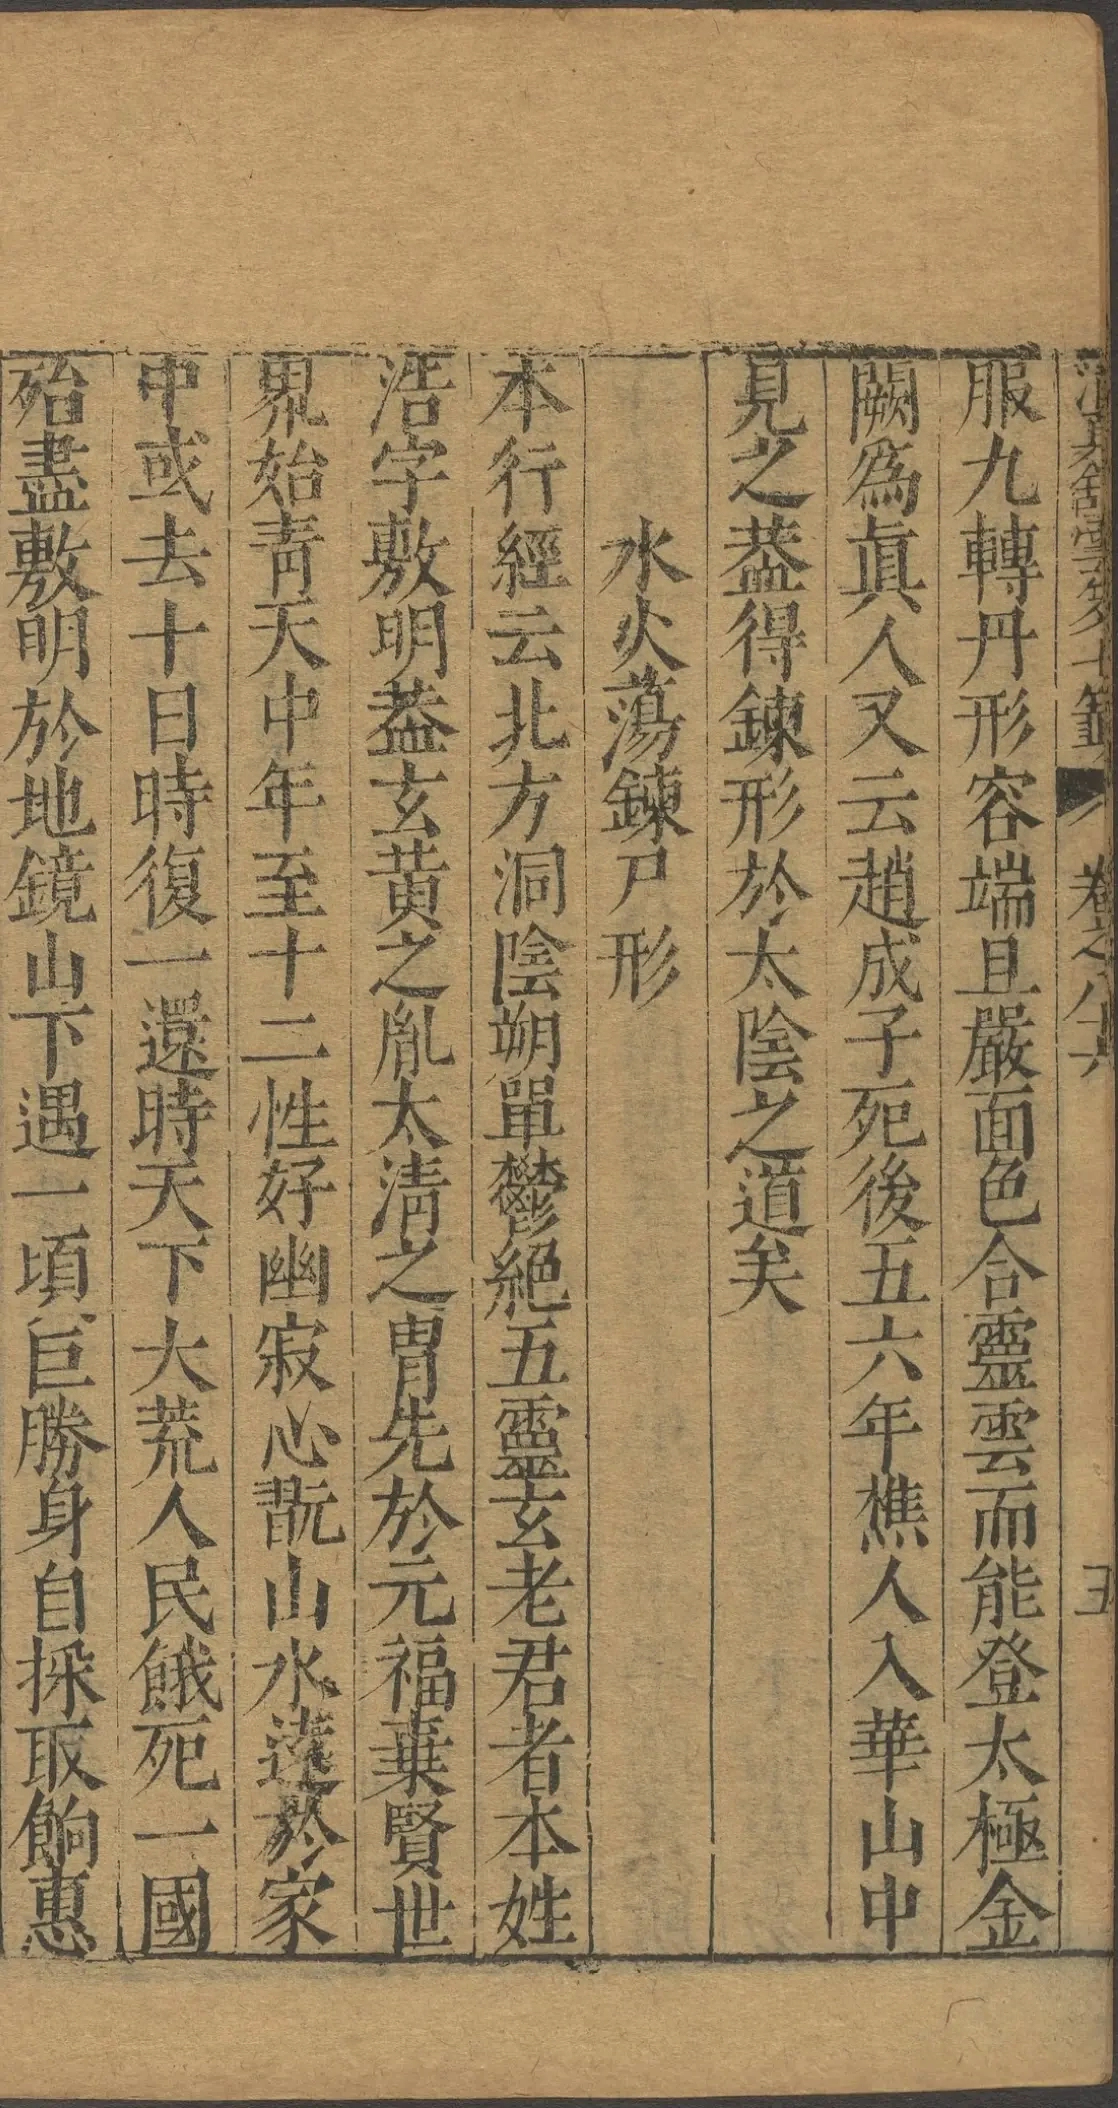 清眞舘雲笈七籤 卷之八十六 五
服九轉丹形容端且嚴面色合靈雲而能登太極金
闕為眞人又云趙成子死後五六年樵人入華山中
見之葢得鍊形於太陰之道矣
水火蕩鍊尸形
本行經云北方洞陰朔單鬱絕五靈玄老君者本姓
浩字敷明葢玄黃之胤太清之胄先於元福棄賢世
界始青天中年至十二性好幽寂心翫山水遠於家
中或去十日時復一還時天下大荒人民餓死一國
殆盡敷明於地鏡山下遇一頃巨勝身自採取餉惠